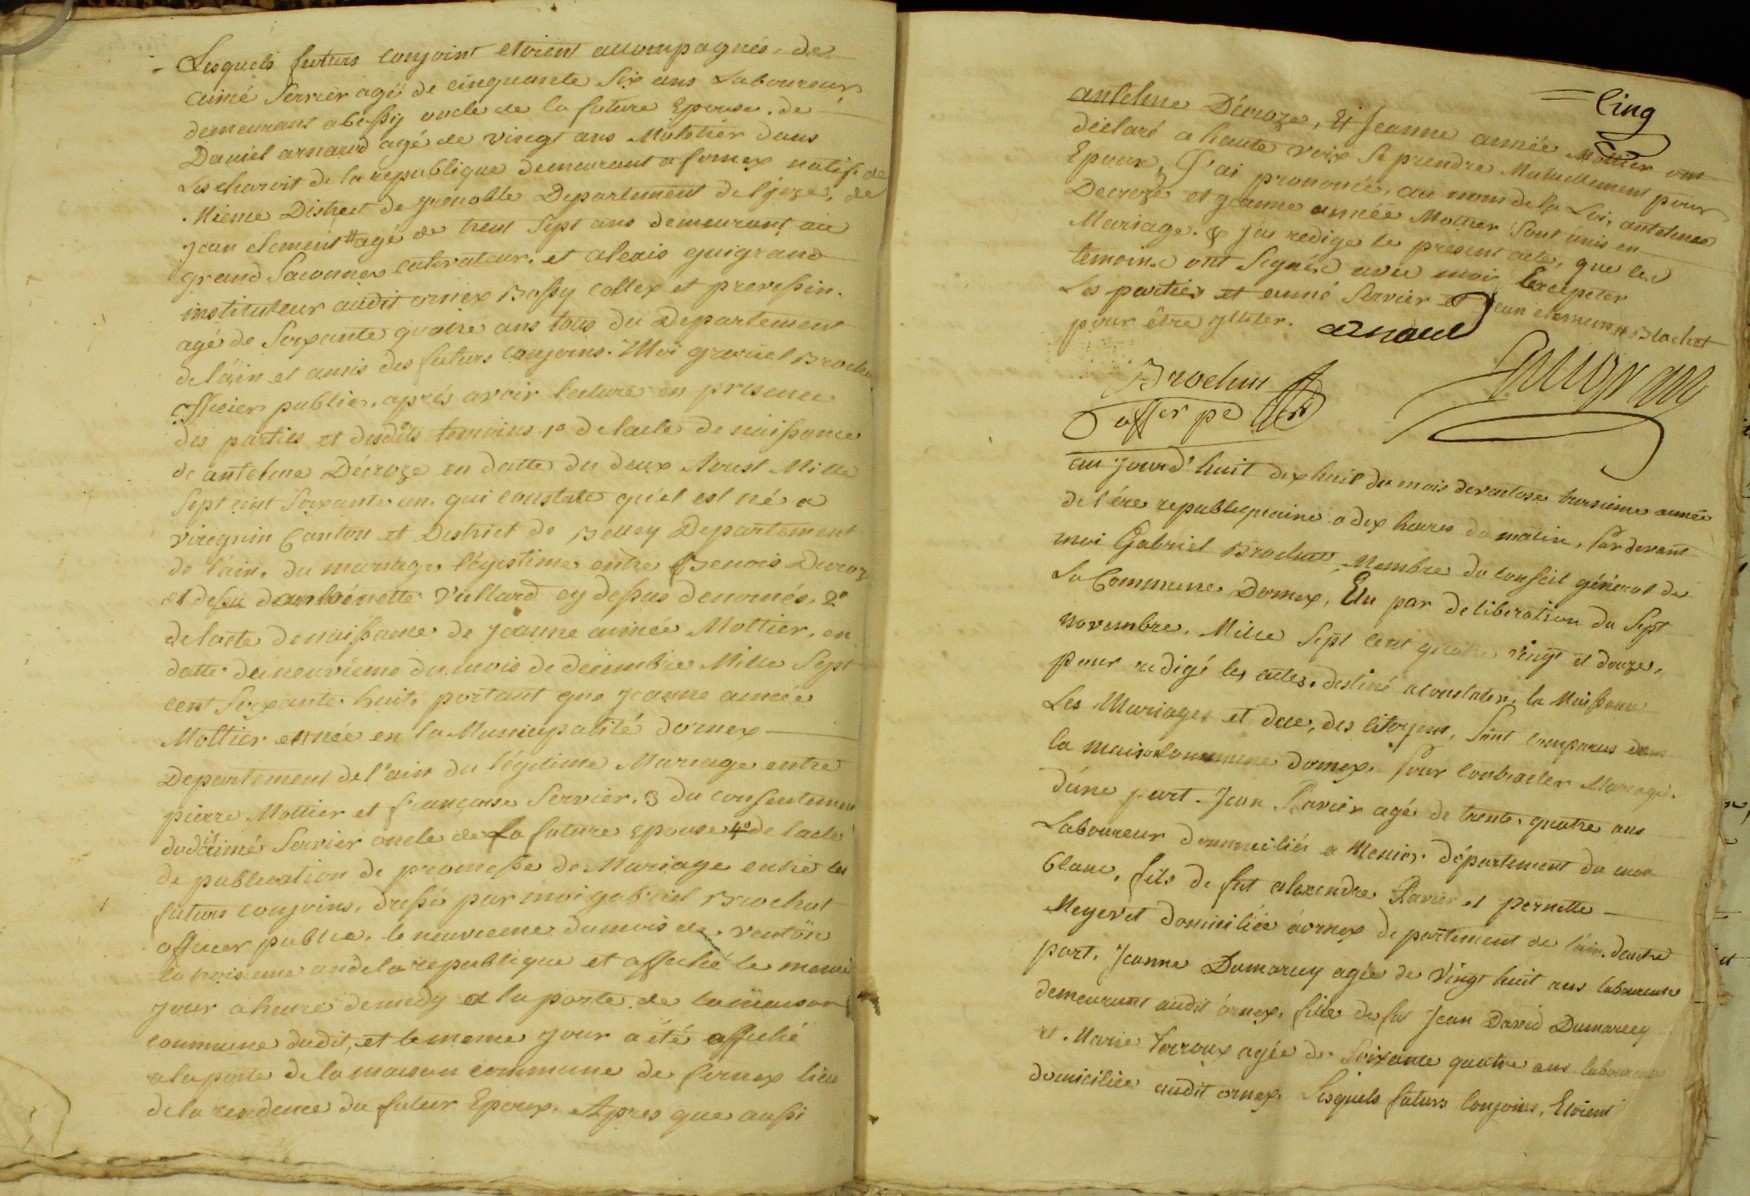 Lesquels futurs conjoint etoient accompagnés. de
aimé Servier agé de cinquante six ans Laboureur
demeurans a bossy oncle de la future Epouse. de
Daniel arnaud agé de vingt ans Mulatier dans
Les charoit de la republique demeurant a fornex natif de
Miême District de grenoble Departement de l'izere, de
jean clement agé de trent sept ans demeurant au
grand Saconnex cultivateur. et alexis guigrand
instituteur audit ornex Bossy collex et prevessin.
agé de Soixante quatre ans tous du Departement
de l'ain et amis des futurs conjoins. Moi gabriel Brochu
officier public. aprés avoir lecture en presence
des parties et desdits temoins 1º de lacte de naissance
de antelme Décroze en datte du deux Aoust Mille
Sept cent Soixante un. qui constate qu'il est né a
viregnin Canton et District de Belley Departement
de l'ain. du mariage légistime entre Benois Decroz
et dantoinette Vallard cy dessus denomés. 2º
de lacte de naissance de jeanne aimée Mottier. en
datte du neuvième du mois de decembre Mille Sept
cent Soixante huit portant que jeanne aimée
Mottier est née en la Municipalité dornex
Departement de l'ain du légitime Mariage entre
pierre Mottier et françoise Servier. 3 du consentement
dudit aimé Servier oncle de La future Epouse 4º de lacte
de publication de promesse de Mariage entre les
futurs conjoins. dressé par moi gabriel Brochut
officier public. le neuvieme du mois de ventôse
la troisieme an de la republique et affiché le meme
jour a heure de midy a la porte de la maison
commune dudit, et le meme jour a été affiché
a la porte de la maison commune de fornex lieu
de la residence du futur Epoux. Apres que aussi
Cinq
antelme Décroze, Et Jeanne aimée Mottier ont
déclaré a haute voix Se prendre Mutuellement pour
Epoux, J'ai prononcé, au nom de la Loi, antelme
Decroze et jeanne aimée Mottier Sont unis en
Mariage. & j'ai redigé le present acte, que les
temoins ont Signés avec moi Excepter
Les parties et aimé Servier et jean clement Blochet
pour être illiter. arnaud
Brochut
offier pc
Guigrand
au jourd'huit dixhuit du mois de ventose troisieme année
de l'ére republiquaine a dix heures du matin, Par devant
moi Gabriel Brochut Membre du conseil général de
La Commune Dornex, Elu par deliberation du Sept
novembre. Mille Sept cent quatre vingt et douze,
pour redigé les actes. destiné a constater. la Naissance
Les Mariages et dece, des citoyens, Sont comparus dans
la maison commune dornex. pour contracter Mariage.
d'une part. Jean Ravier agé de trente. quatre ans
Laboureur domicilié a Menier. département du mon
blanc, fils de fut alexendre Ravier et pernette
Meyer et domiciliée a ornex departement de l'ain. d'autre
part. Jeanne Dumarey agée de vingt huit ans laboureuse
demeurant audit ornex. fille de fut Jean David Dumarcey
et Marie Verroux agée de Soixante quatre ans laboureuse
domiciliée audit ornex. Lesquels futurs conjoins, Etoient